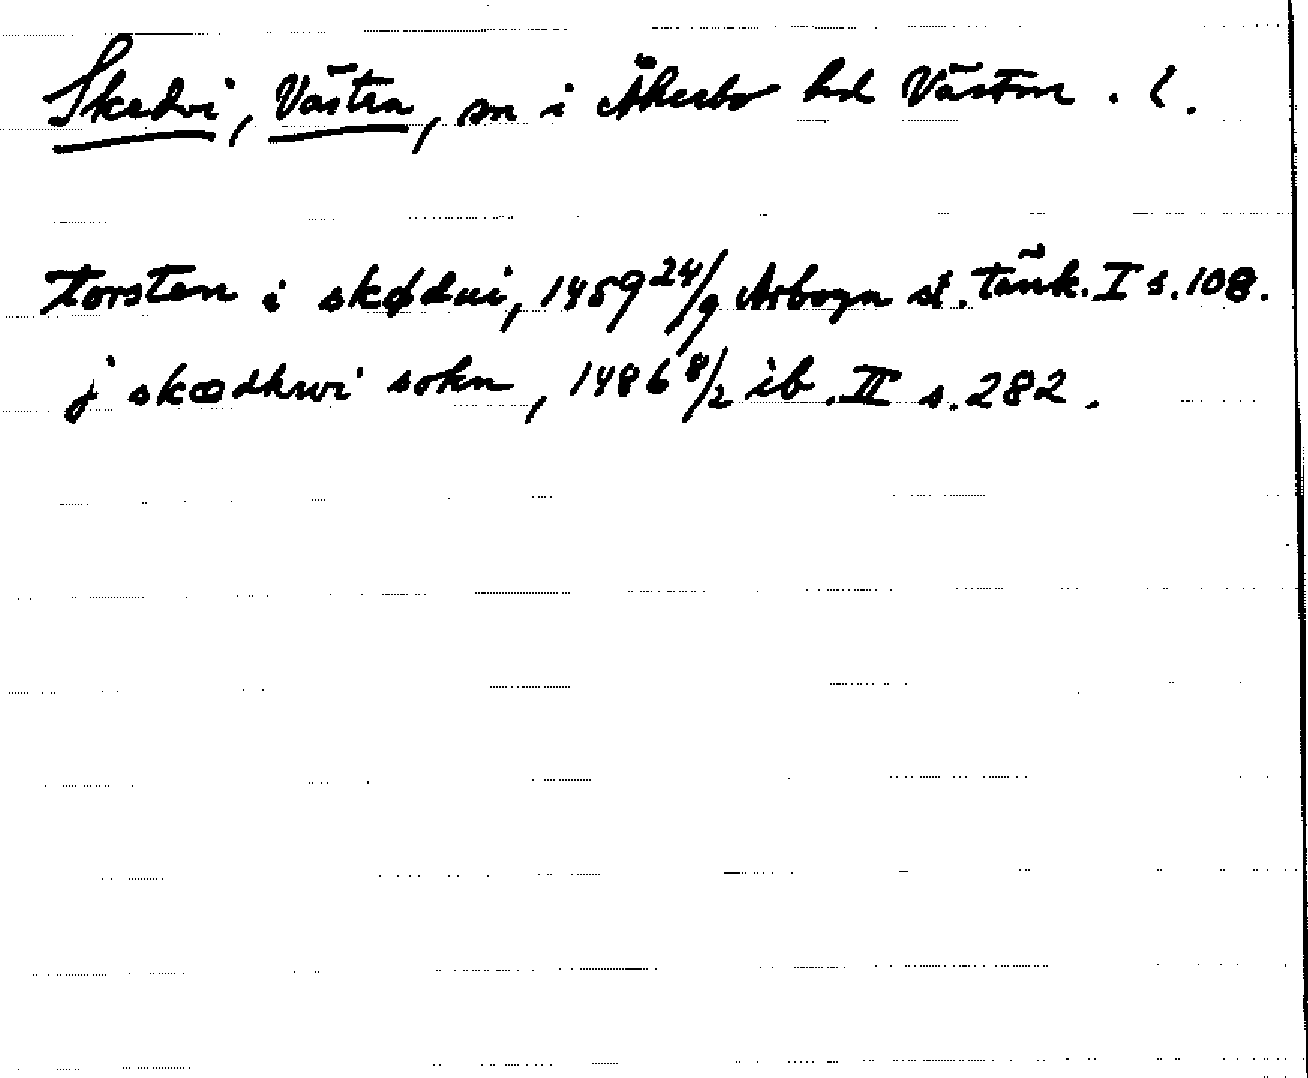 Skedvi, Västra, sn i Åkerbo hd Västm. l.
torsten i skødui, 1459 24/9 Arboga st. tänk. I s. 108.
j skædhwi sokn, 1486 8/2 ib. II s. 282.